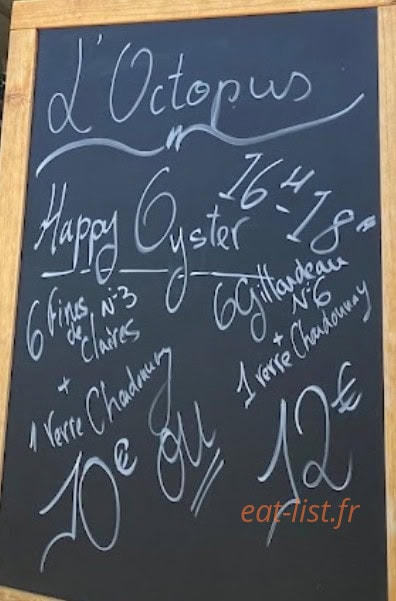 L'Octopus
Happy Oyster 16H-18H
6 Fines N°3
de
Claires
+
1 verre Chardonnay
10€
ou
6 Gillardeau
N°6
+
1 verre Chardonnay
12€
eat-list.fr